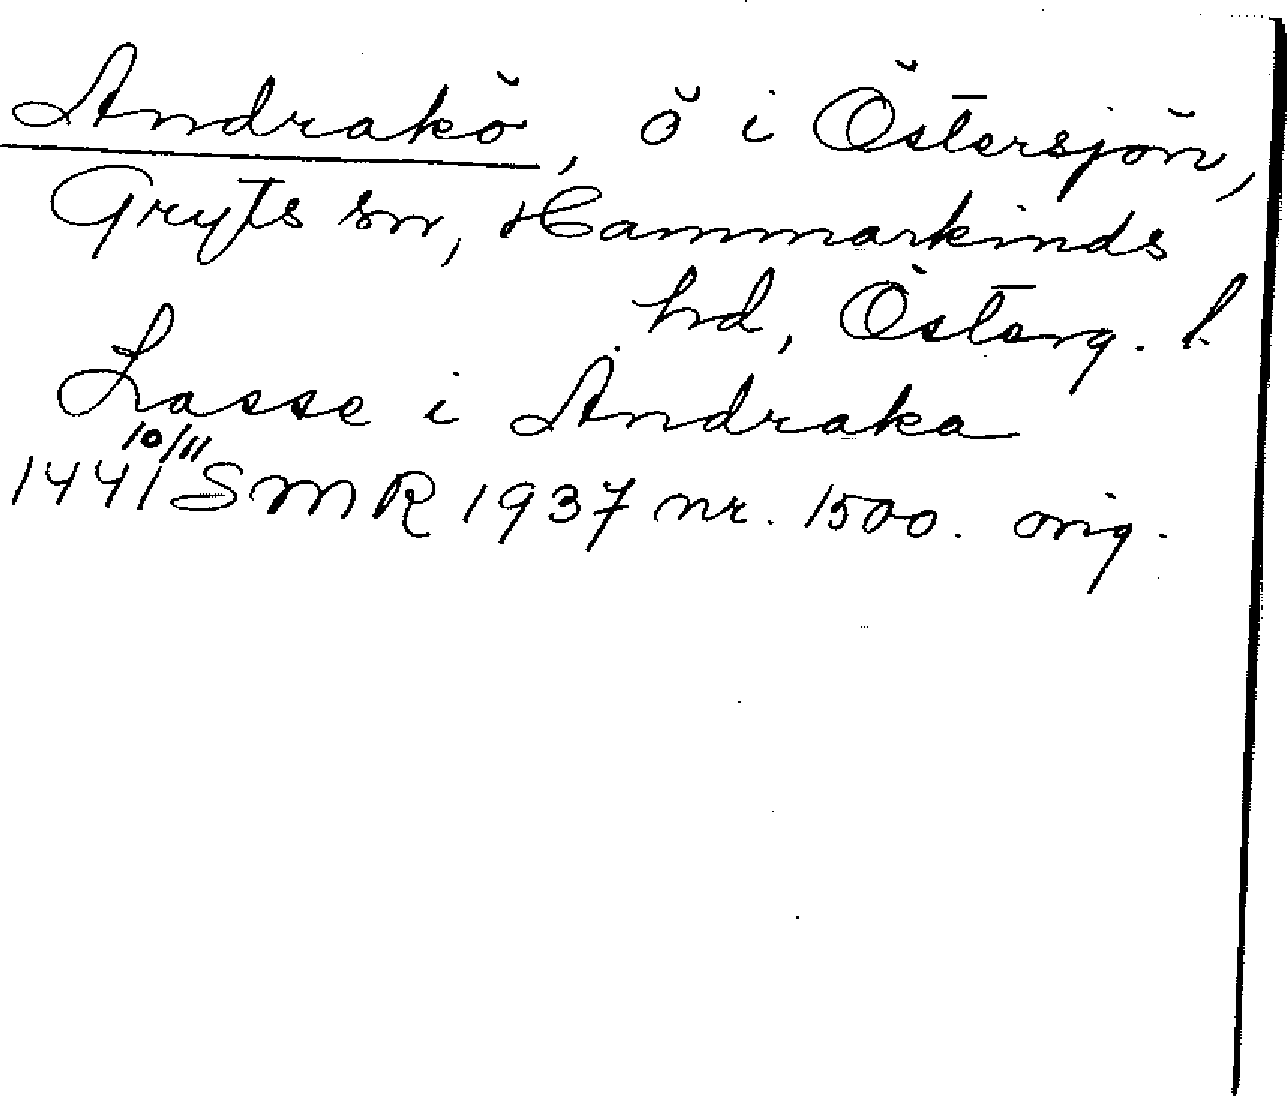 Andrakö, ö i Östersjön,
Gryts sn, Hammarkinds
hd, Österg. l.
Lasse i Andraka
1441 10/11 SMR 1937 nr. 1500. orig.